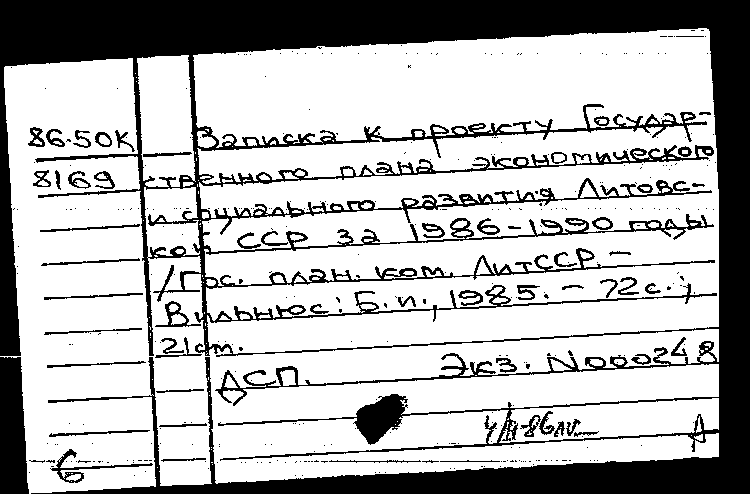 86.50К Записка к проекту Государ-
8169 ственного плана экономического
и социального развития Литовс-
кой ССР за 1986-1990 годы
/Гос. план. ком. ЛитССР.-
Вильнюс: Б.и., 1985. - 72с.;
21ст.
ДСП. Экз. N000248
4/III-86
А
6